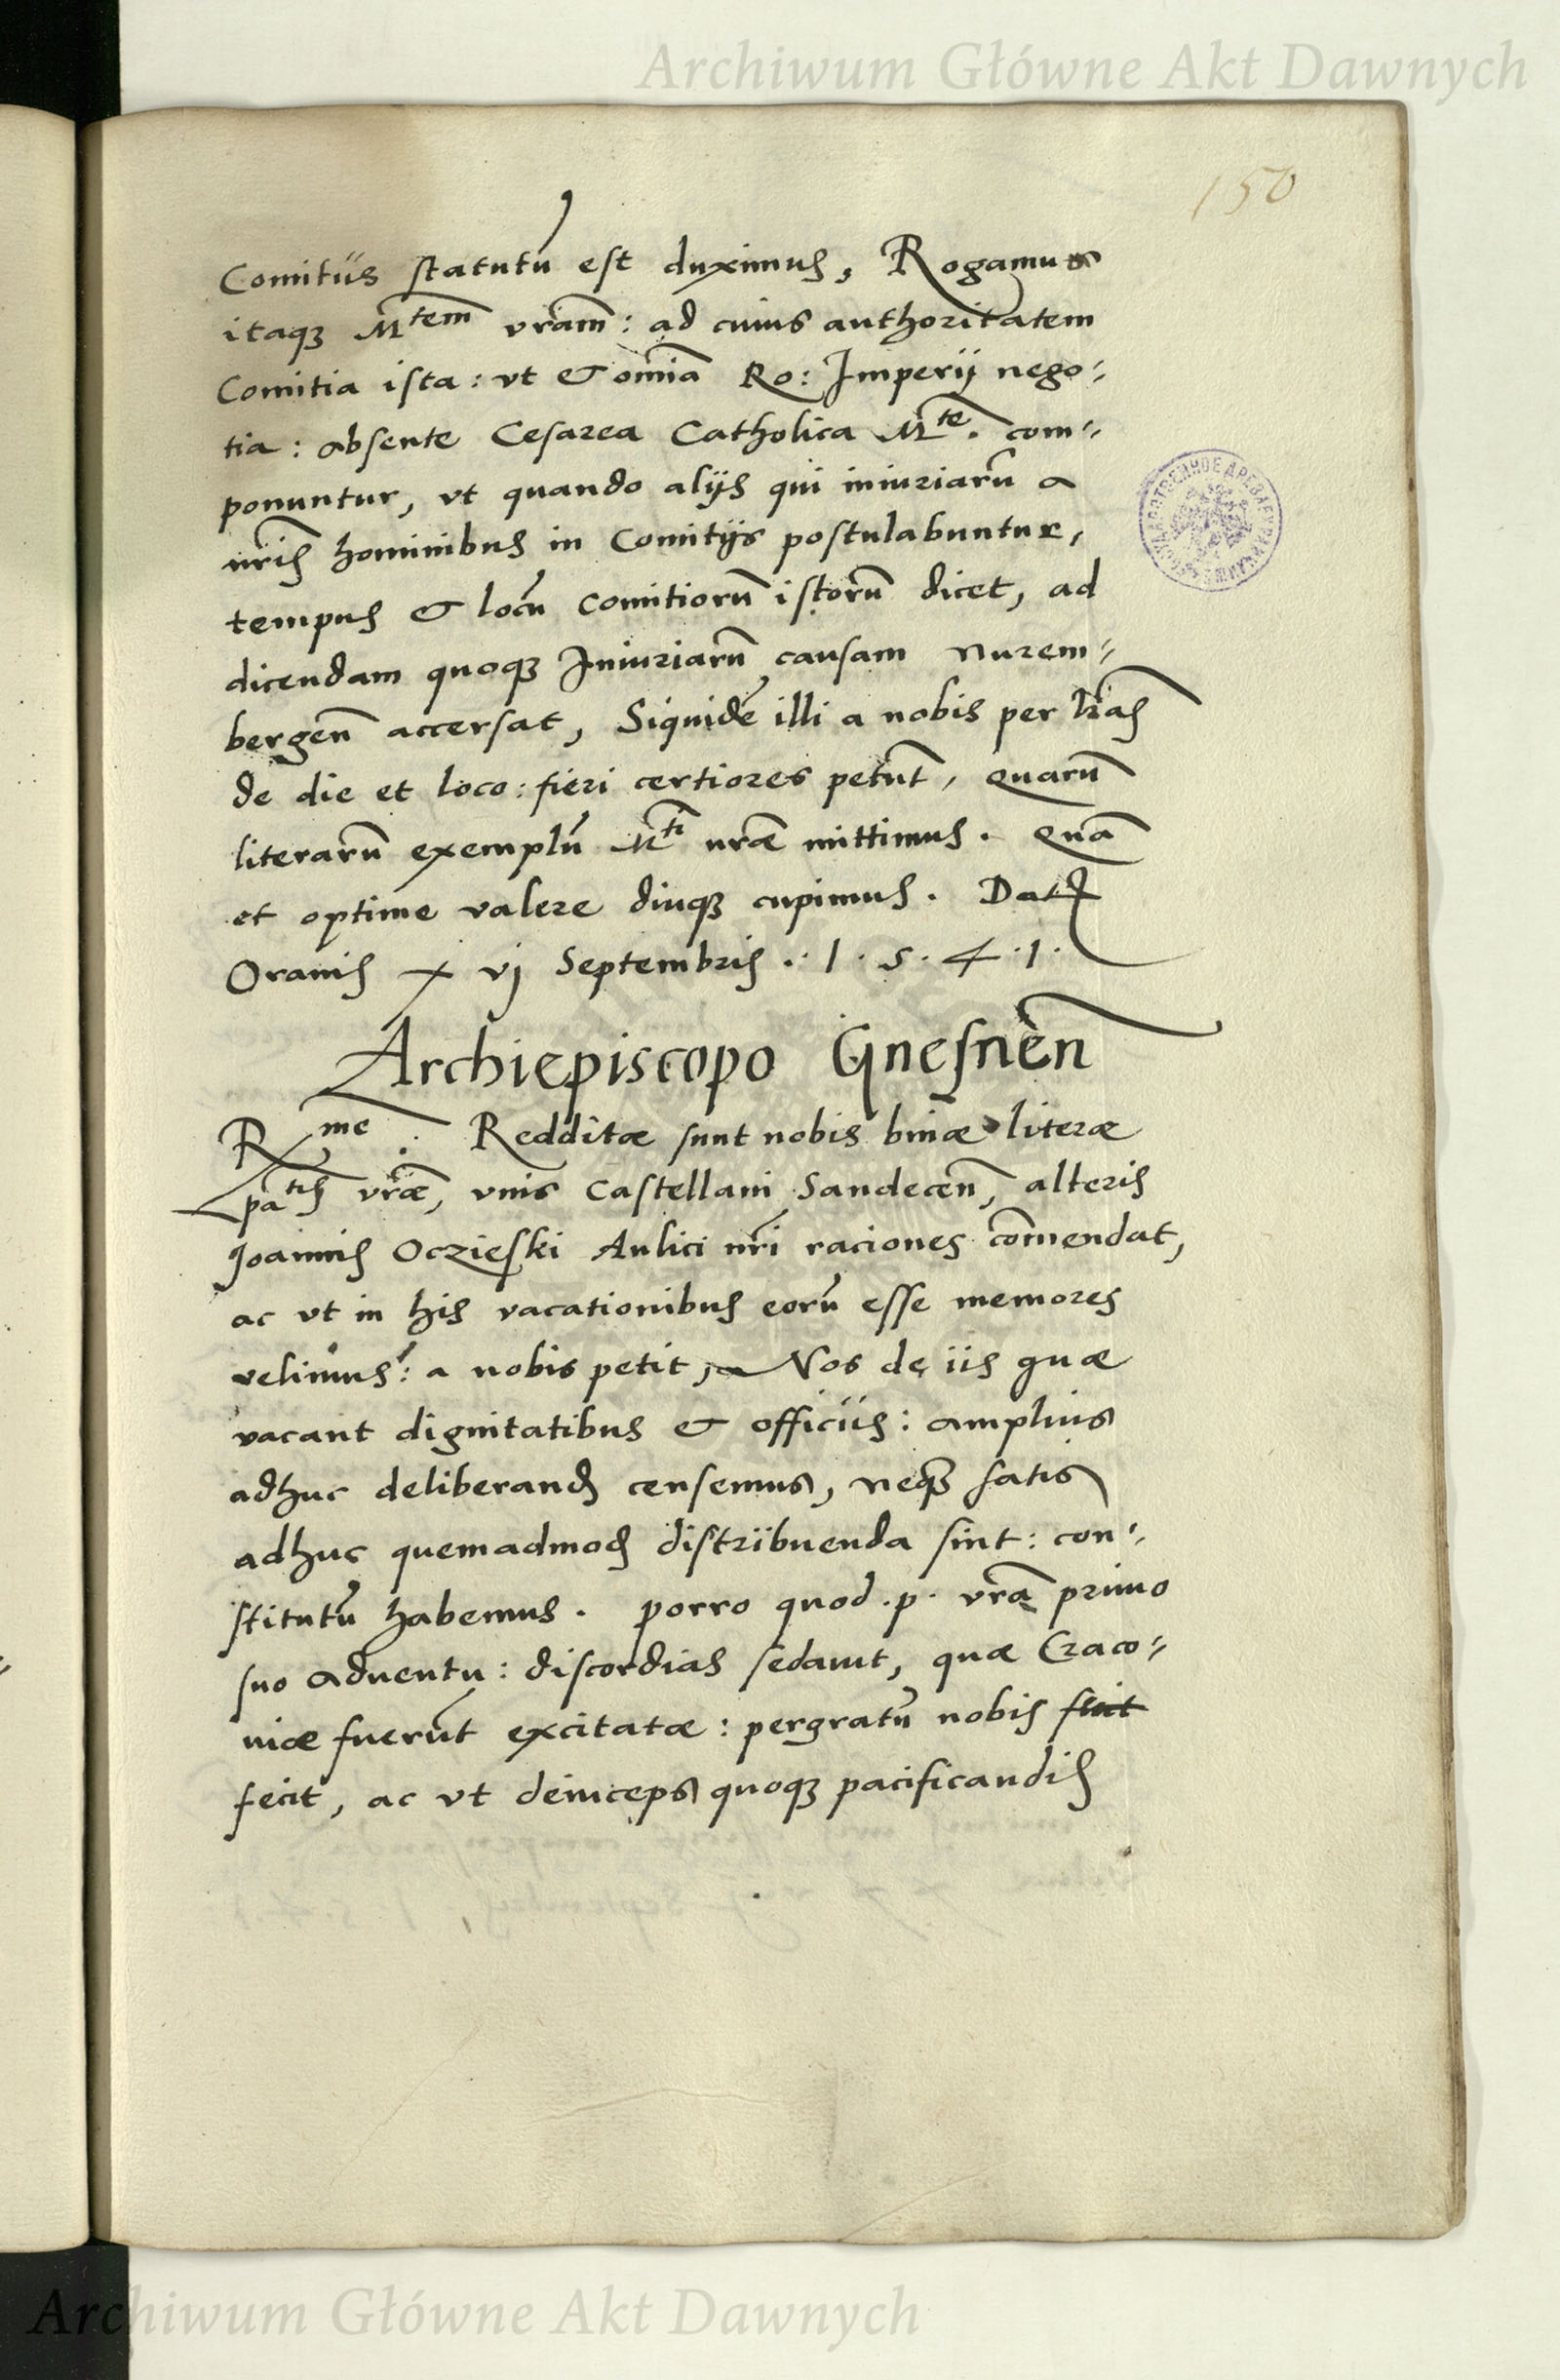 Archiwum Główne Akt Dawnych
150
Comitiis statutũ est duximus, Rogamus
itaqꝫ M^tem vrãm: ad cuius authoritatem
Comitia ista: vt & om̃ia Ro: Imperij nego:
tia: absente Cesarea Catholica M^te. com:
ponuntur, vt quando alijs qui iniuriarũ a
nr̃is hominibus in Comitijs postulabuntur,
tempus & locũ comitiorũ istorũ dicet, ad
dicendam quoqꝫ Iniuriarũ causam Nurem:
bergeñ accersat, Siquidẽ illi a nobis per lr̃as
de die et loco: fieri certiores petũt, quarũ
literarũ exemplũ M^ti vr̃ae mittimus. Quã
et optime valere diuqꝫ cupimus. Dat
Oranis x vj Septembris . 1 . 5 . 4 . 1 .
Archiepiscopo Gnesneñ
R^me : Redditae sunt nobis binae literae
pa^tis vr̃ae, vnis Castellani Sandeceñ, alteris
Ioannis Oczieski Aulici nr̃i raciones com̃endat,
ac vt in his vacationibus eorũ esse memores
velimus: a nobis petit, Nos de iis quae
vacant dignitatibus & officiis: amplius
adhuc deliberand censemus, neqꝫ satis
adhuc quemadmod distribuenda sint: con:
stitutũ habemus. porro quod .p. vr̃a primo
suo aduentu: discordias sedauit, quae Craco:
uiae fuerũt excitatae: pergratũ nobis fuit
fecit, ac vt deinceps quoqꝫ pacificandis
Archiwum Główne Akt Dawnych